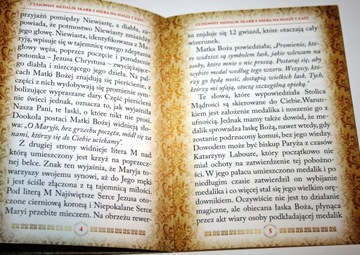 CUDOWNY MEDALIK SKARB Z NIEBA NA NASZE CZASY
przyjaźń pomiędzy Niewiastę, a diabła, za-
powiada, że potomstwo Niewiasty zmiażdży
jego głowę. Niewiasta, identyfikowana z Ma-
ryją, wpisuje się w tajemnicę zdeptania głowy
węża, poprzez poczęcie i porodzenie
potomka – Jezusa Chrystusa – zwyciężające-
go diabła i niszczącego jego dzieła. Na palcach
Matki Bożej znajdują się pierścienie, z
których wychodzą promienie sym-
bolizujące wypraszane dary. Część pierścieni
nie ma promieni, są to łaski, o które nikt nie prosi.
Dookoła postaci Matki Bożej widnieją sło-
wa: „O Maryjo, bez grzechu poczęta, módl się za
nami, którzy się do Ciebie uciekamy”.
Z drugiej strony widnieje litera M nad
którą umieszczony jest krzyż na poprzecz-
nej belce. Znak ten wyjaśnia, że Maryja to-
warzyszy swojemu synowi, aż do Jego męki
i jest ściśle złączona z tą tajemnicą miłości.
Pod literą M Najświętsze Serce Jezusa oto-
czone cierniową koroną i Niepokalane Serce
Maryi przebite mieczem. Na obrzeżu rewer-
4
CUDOWNY MEDALIK SKARB Z NIEBA NA NASZE CZASY
su znajduje się 12 gwiazd, które otaczają cały
wizerunek.
Matka Boża powiedziała: „Promienie, któ-
re widzisz są symbolem łask, jakie wieczam na
osoby, które mnie o nie proszą. Postaraj się o
wybicie medalu według tego wzoru. Wszyscy, któ-
rzy go będą nosić, dostąpią wielkich łask. Tych,
którzy mi ufają, otoczę szczególną opieką”.
Te słowa, które wypowiedziała Stolica
Mądrości są skierowane do Ciebie. Warun-
kiem jest założenie medalika i noszenie go z
ufnością. Jednak mamy także dowód, że me-
dalik, a raczej łaska Boża, nawet wtedy, gdy
zostanie podrzucony komuś, bez jego wiedzy.
Dowodem może być biskup Paryża z czasów
Katarzyny Laboure, który początkowo nie
miał ochoty na zatwierdzenie tego objawie-
nia. W jego pałacu umieszczono medalik i po
niedługim czasie zatwierdził on wybijanie
medalika i co więcej stał się jego wielkim orę-
downikiem. Oczywiście nie jest to działanie
magiczne, ale obecna łaska Boża, płynąca
przez akt wiary osoby podkładającej medalik
5